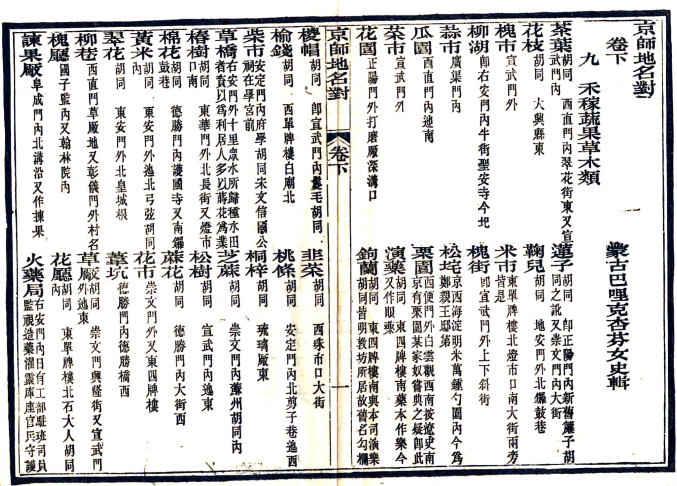 京師地名對
卷下 蒙古巴哩克杏芬女史輯
九 禾稼蔬果草木類
茶葉胡同 西直門內翠花街東又宣武門內 蓮子胡同 卽正陽門內新舊簾子胡同之訛又崇文門內大街
花枝胡同 大興縣東 鞠兒胡同 地安門外北鑼鼓巷
槐市宣武門外 米市東單牌樓北燈市口南大街兩旁皆是
柳湖卽右安門內牛街聖安寺今圮 槐街卽宣武門外上下斜街
蒜市廣渠門內 松坨京西海淀明米萬鍾勺園內今為鄭親王邸第
瓜園西直門內迤南 栗園西便門外白雲觀西南按遼史南京有栗園某家奴嘗典之疑卽此
菜市宣武門外 演藥胡同 東四牌樓南藥本作樂今又作眼藥
花園正陽門外打磨廠深溝口 鉤蘭胡同 東四牌樓南與本司演樂胡同皆明教坊所居故舊名勾欄
京師地名對 卷下 一
椶帽胡同 卽宣武門內氈毛胡同 韭菜胡同 西珠市口大街
榆錢胡同 西單牌樓白廟北 桃條胡同 安定門內北剪子巷迤西
柴市安定門內府學胡同宋文信國公祠在學宮前 桐梓胡同 琉璃廠東
草橋右安門外十里眾水所歸種水田者資以為利居人多以蒔花為業 芝蔴胡同 崇文門內蘇州胡同內
椿樹胡同 東華門外北長街又燈市口南 松樹胡同 宣武門內迤東
棉花胡同 德勝門內護國寺又南鑼鼓巷 蔴花胡同 德勝門內大街西
黃米胡同 東安門外迤北弓弦胡同內 花市崇文門外又東四牌樓
翠花胡同 東安門外北皇城根 葦坑德勝門內德勝橋西
柳巷西直門草廠地又彰儀門外村名 草廠胡同 崇文門興隆街又宣武門外迤東
槐廳國子監內又翰林院內 花廳胡同 東單牌樓北石大人胡同內
諫果廠阜成門內北溝沿又作揀果 火藥局右安門內日有工部駐班司員監視造藥濯靈庫座官兵守護